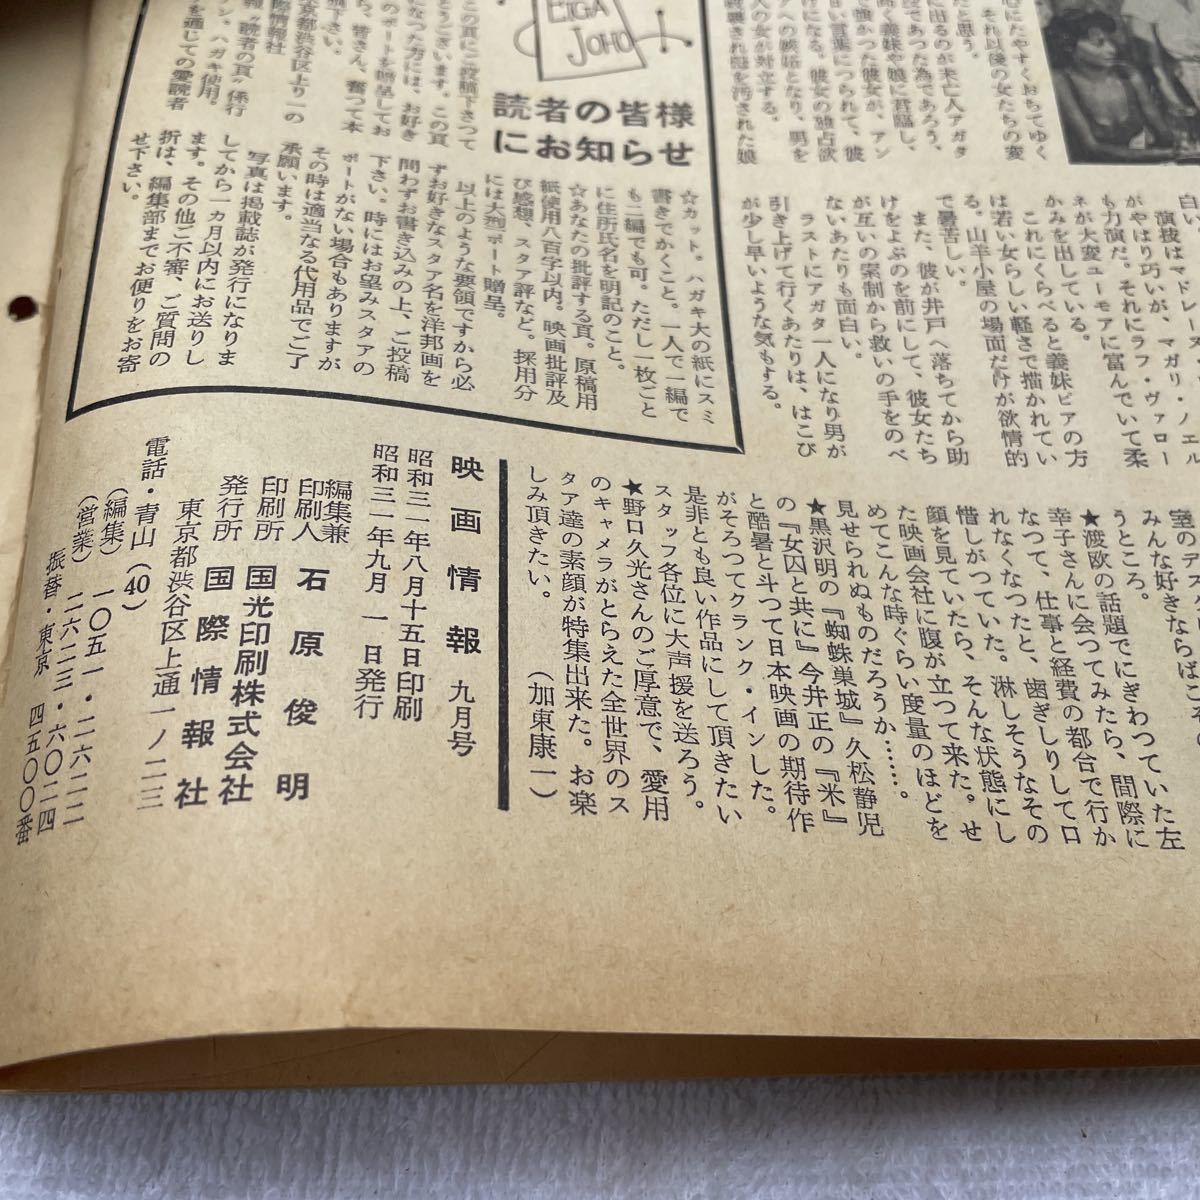 心にたやすくおちてゆく
それ以後の女たちの変
だと思う。
に出るのが未亡人アガタ
役であつた為であろう、
高く義妹や娘に君臨し、
で強かつた彼女が、アン
い言葉につられて、彼
けになる。彼女の独占欲
アへの嫉妬となり、男を
人の女が対立する。
誘惑され娘を汚された娘
白い。
演技はマドレーヌ・
がやはり巧いが、マガリ・ノエル
も力演だ。それにラフ・ヴァロー
ネが大変ユーモアに富んでいて柔
かみを出している。
これにくらべると義妹ピアの方
は若い女らしい軽さで描かれてい
る。山羊小屋の場面だけが欲情的
で暑苦しい。
また、彼が井戸へ落ちてから助
けをよぶのを前にして、彼女たち
が互いの索制から救いの手をのべ
ないあたりも面白い。
ラストにアガタ一人になり男が
引き上げて行くあたりは、はこび
が少し早いような気もする。
EIGA
JOHO
読者の皆様
にお知らせ
この頁にご投稿下さつて
とうございます。この頁
になつた方には、お好き
のポートを贈呈してお
ら、皆さん、奮つて本
稿下さい。
京都渋谷区上り一の
際情報社
報〝読者の頁〟係行
ン、ハガキ使用。
を通じての愛読者
☆カット。ハガキ大の紙にスミ
書きでかくこと。一人で一編で
も二編でも可。ただし一枚ごと
に住所氏名を明記のこと。
☆あなたの批評する頁。原稿用
紙使用八百字以内。映画批評及
び感想、スタア評など。採用分
には大型ポート贈呈。
以上のような要領ですから必
ずお好きなスタア名を洋邦画を
問わずお書き込みの上、ご投稿
下さい。時にはお望みスタアの
ポートがない場合もありますが
その時は適当なる代用品でご了
承願います。
写真は掲載誌が発行になりま
してから一カ月以内にお送りし
ます。その他ご不審、ご質問の
折は、編集部までお便りをお寄
せ下さい。
みんな好きならばこそ
うところ。
★渡欧の話題でにぎわつていた左
幸子さんに会つてみたら、間際に
なつて、仕事と経費の都合で行か
れなくなつたと、歯ぎしりして口
惜しがつていた。淋しそうなその
顔を見ていたら、そんな状態にし
た映画会社に腹が立つて来た。せ
めてこんな時ぐらい度量のほどを
見せられぬものだろうか……。
★黒沢明の『蜘蛛巣城』久松静児
の『女囚と共に』今井正の『米』
と酷暑と斗つて日本映画の期待作
がそろつてクランク・インした。
是非とも良い作品にして頂きたい
スタッフ各位に大声援を送ろう。
★野口久光さんのご厚意で、愛用
のキャメラがとらえた全世界のス
タア達の素顔が特集出来た。お楽
しみ頂きたい。（加東康一）
映画情報 九月号
昭和三一年八月十五日印刷
昭和三一年九月一日発行
編集兼
印刷人 石原俊明
印刷所 国光印刷株式会社
発行所 国際情報社
東京都渋谷区上通一ノ二三
電話・青山（40）
（編集）一〇五一・二六二二
（営業）二六二三・六〇二四
振替・東京 四五〇〇番